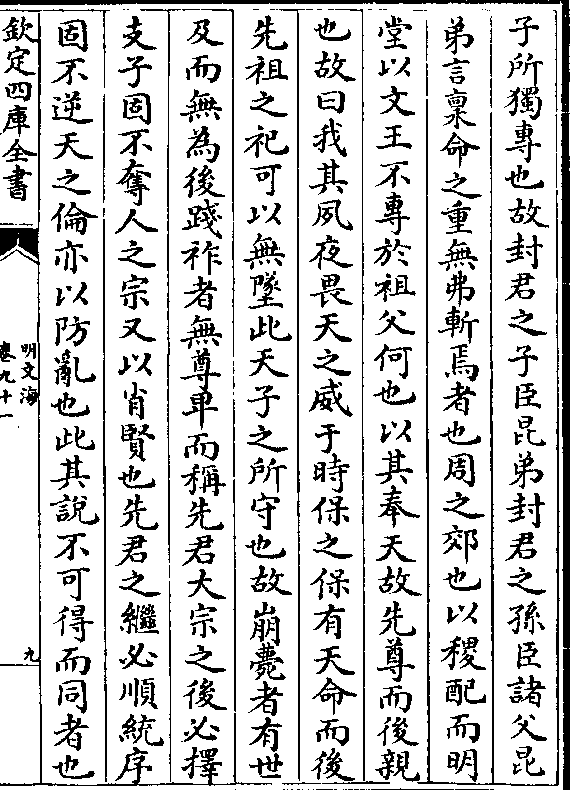 子所獨專也故封君之子臣昆弟封君之孫臣諸父昆
弟言稟命之重無弗斬焉者也周之郊也以稷配而明
堂以文王不專於祖父何也以其奉天故先尊而後親
也故曰我其夙夜畏天之威于時保之保有天命而後
先祖之祀可以無墜此天子之所守也故崩薨者有世
及而無為後踐祚者無尊卑而稱先君大宗之後必擇
支子固不奪人之宗又以肖賢也先君之繼必順統序
固不逆天之倫亦以防亂也此其說不可得而同者也
欽定四庫全書
明文海
卷九十一
九